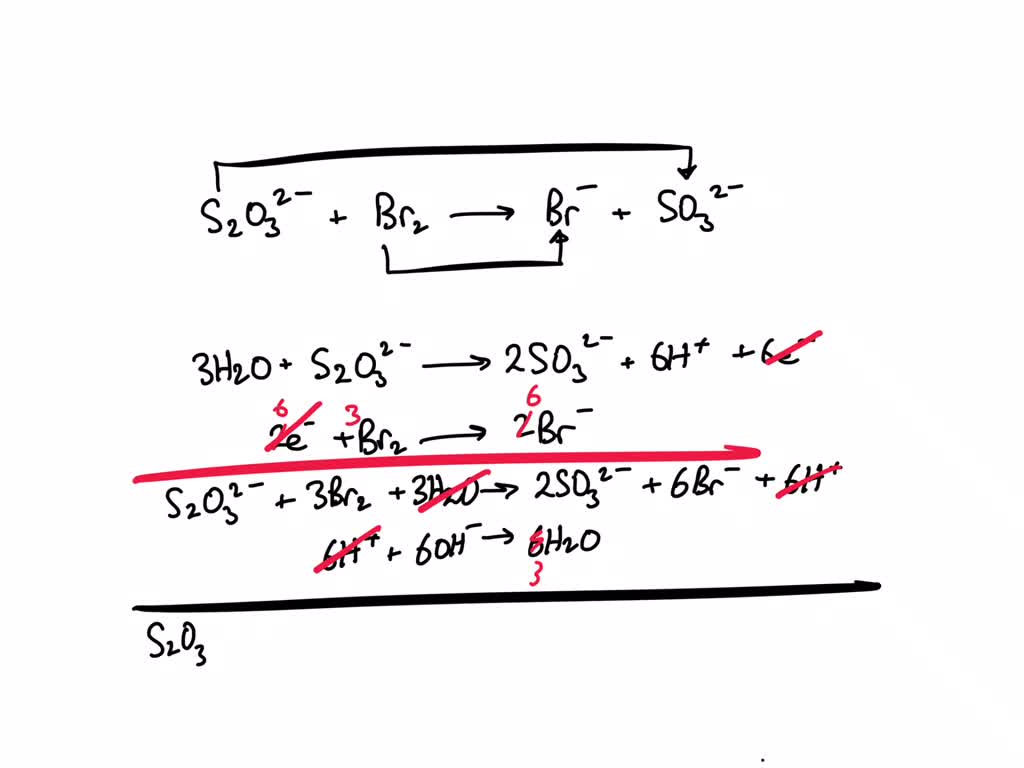 S₂O₃²⁻ + Br₂ → Br⁻ + SO₃²⁻
3H₂O + S₂O₃²⁻ → 2SO₃²⁻ + 6H⁺ + 6e⁻
6 3 6
2e⁻ + Br₂ → 2Br⁻
S₂O₃²⁻ + 3Br₂ + 3H₂O → 2SO₃²⁻ + 6Br⁻ + 6H⁺
6H⁺ + 6OH⁻ → 6H₂O
3
S₂O₃